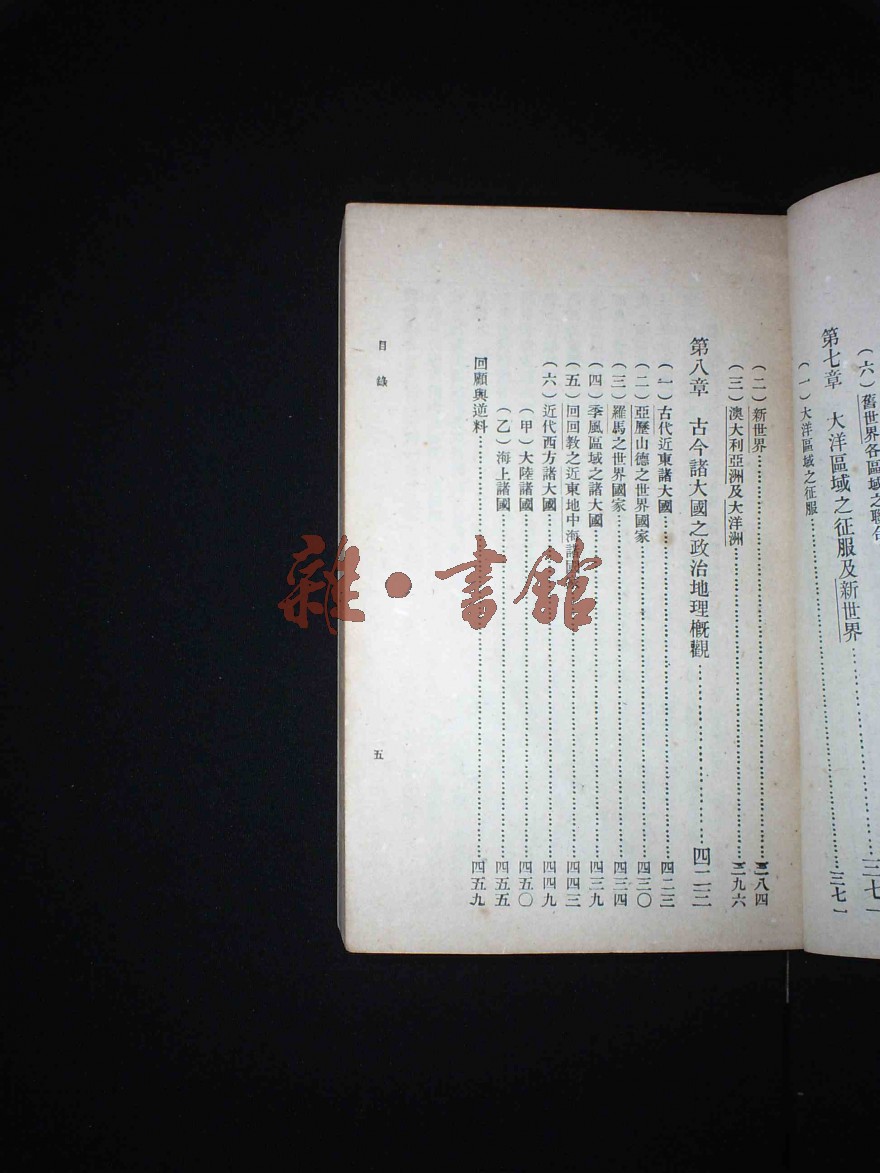 (六)舊世界各區域之聯合
第七章 大洋區域之征服及新世界……三七一
(一)大洋區域之征服……三七一
(二)新世界……三八四
(三)澳大利亞洲及大洋洲……三九六
第八章 古今諸大國之政治地理概觀……四二三
(一)古代近東諸大國……四二三
(二)亞歷山德之世界國家……四三〇
(三)羅馬之世界國家……四三四
(四)季風區域之諸大國……四三九
(五)回回教之近東地中海諸國……四四三
(六)近代西方諸大國……四四九
(甲)大陸諸國……四五〇
(乙)海上諸國……四五五
回顧與逆料……四五九
目錄
五
雜·書館